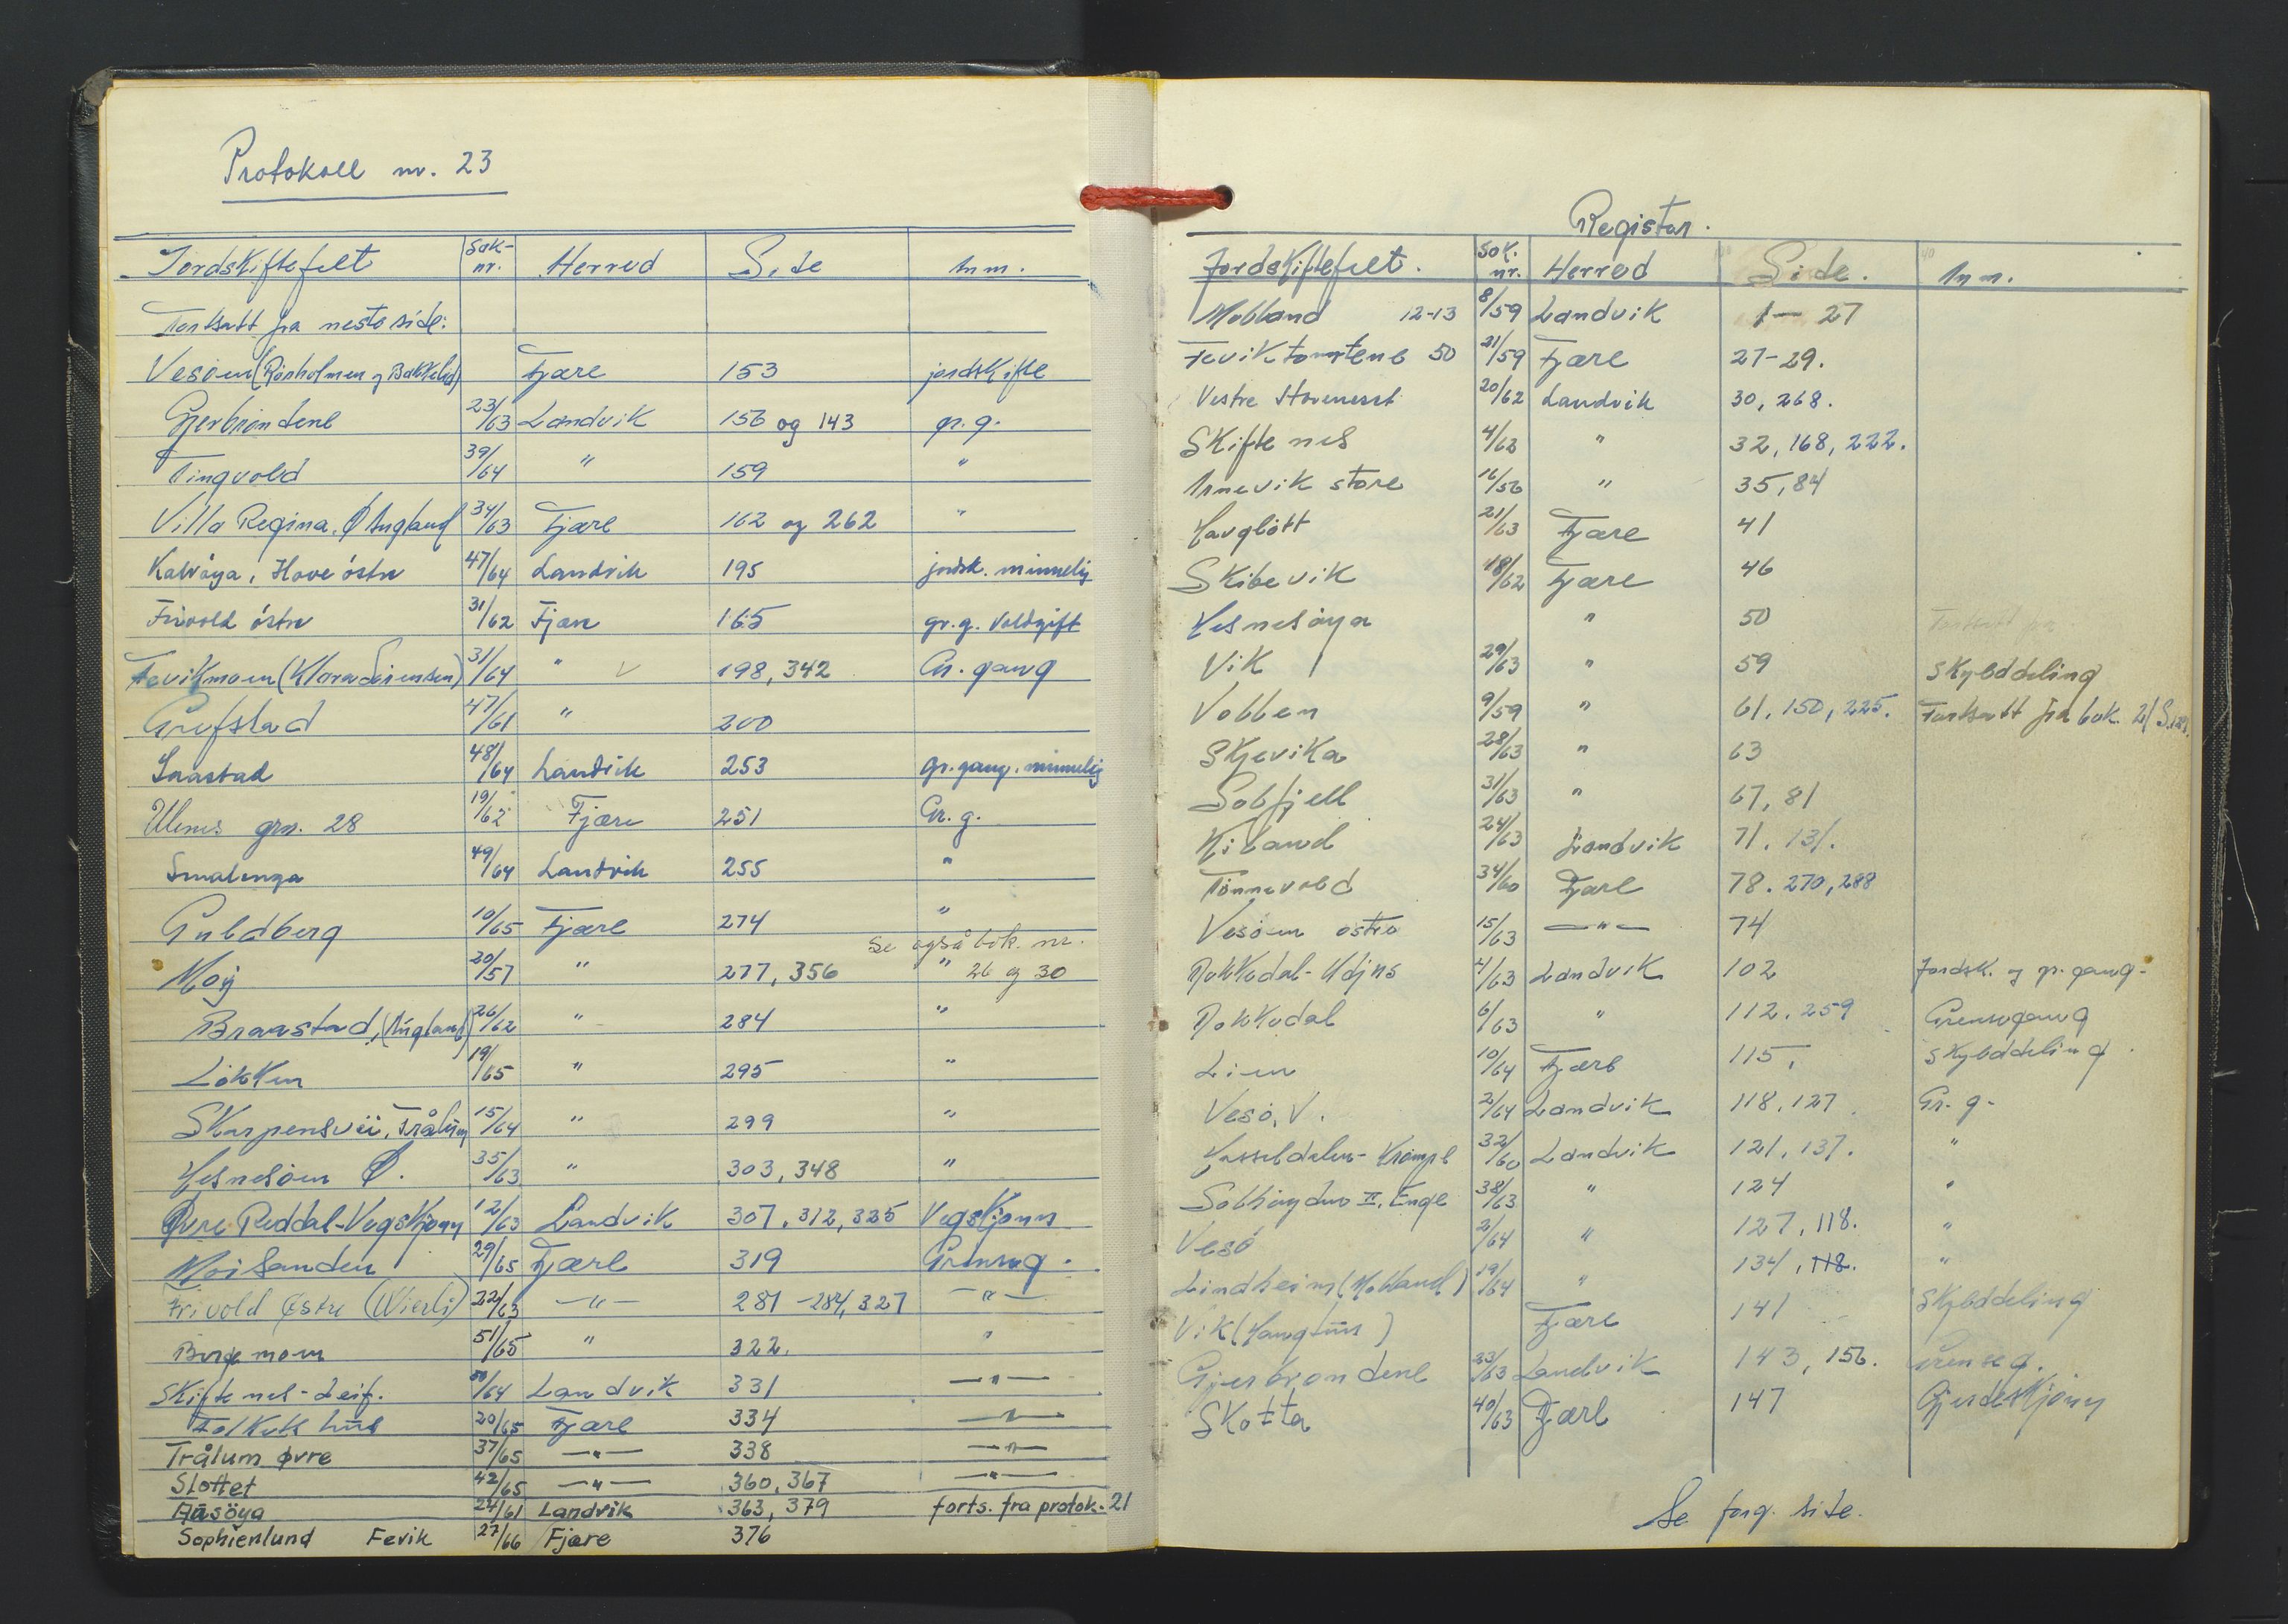 Protokoll nr. 23
Jordskiftefelt Sak-nr. Herred Side Anm.
Fortsatt fra neste side:
Vesöen (Rönholmen og Bakkelid) Fjære 153 jordskifte
Gjerbröndene 23/63 Landvik 156 og 143 gr.g.
Tingvold 39/64 " 159 "
Villa Regina, Ø Bugland 34/63 Fjære 162 og 262 "
Kalvöya, Hove östre 47/64 Landvik 195 jordsk. minnelig
Frivold östre 31/62 Fjære 165 gr.g. Voldgift
Fevikmoen (Klara Sörensen) 31/64 " V 198, 342 Gr. gang
Grefstad 47/61 " 200
Saastad 48/64 Landvik 253 gr. gang. minnelig
Ulenes grn. 28 19/62 Fjære 251 Gr. g.
Smalenga 49/64 Landvik 255 "
Guldberg 10/65 Fjære 274 "
se også bok. nr.
Moy 20/57 " 277, 356 " 26 og 30
Braastad, (Bugland) 26/62 " 284 "
Lökken 19/65 " 295 "
Skarpensvei, Trålum 15/64 " 299 "
Hesnesöen Ø. 35/63 " 303, 348 "
Øvre Reddal-Vegskjönn 12/63 Landvik 307, 312, 325 Vegskjönn
Moisanden 29/65 Fjære 319 Grenseg.
Frivold Østre (Wierli) 22/63 —"— 281 - 284, 327 —"—
Bergemoen 51/65 " 322. "
Skiftenes - Leif. 50/64 Landvik 331 —"—
Folkets hus 20/65 Fjære 334 —"—
Trålum øvre 37/65 —"— 338 —"—
Slottet 42/65 —"— 360, 367 —"—
Aasöya 24/61 Landvik 363, 379 forts. fra protok. 21
Sophienlund Fevik 27/66 Fjære 376
Register.
Jordskiftefelt. Sak. nr. Herred Side. Anm.
Molland 12-13 8/59 Landvik 1 — 27
Feviktomtene 50 21/59 Fjære 27-29.
Vestre 20/62 Landvik 30, 268.
Skiftenes 4/62 " 32, 168, 222.
Arnevik store 16/56 " 35, 84
Haugtött 21/63 Fjære 41
Skibevik 18/62 Fjære 46
Hesnesöya " 50 Fortsatt fra
Vik 29/63 " 59 Skylddeling
Vollen 9/59 " 61, 150, 225. Fortsatt fra bok. 21 S.
Skjevika 28/63 " 63
Solfjell 31/63 " 67, 81
Kiland 24/63 Landvik 71, 131.
Tönnevold 34/60 Fjære 78. 270, 288
Vesöen östre 15/63 —"— 74
Dokkedal- 4/63 Landvik 102 Jordsk. og gr. gang.
Dokkedal 6/63 " 112, 259 Grensegang
Lien 10/64 Fjære 115, Skylddeling.
Vesö, V. 2/64 Landvik 118, 127 Gr. g.
Hasseldalen - 32/60 Landvik 121, 137. "
Solhögda II, Enge 38/63 " 124 "
Vesö 2/64 " 127, 118. "
Lindheim (Molland) 19/64 " 134, 118. "
Vik (Haugtun) Fjære 141 Skylddeling
Gjerbröndene 23/63 Landvik 143, 156. Grenseg.
Skotta 40/63 Fjære 147 Gjerdeskjönn
Se forg. side.